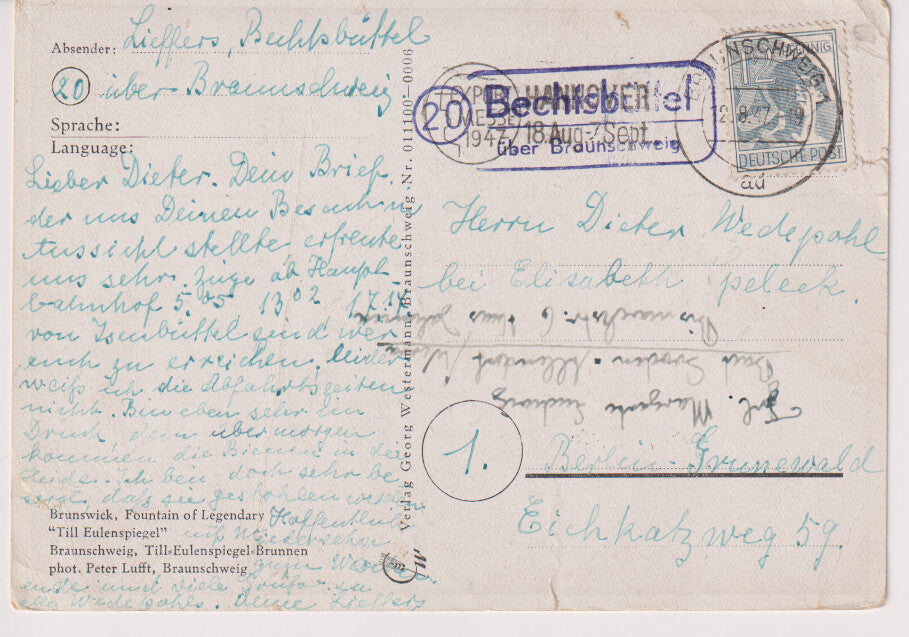 Absender: Lieffers, Bechtsbüttel
20 über Braunschweig
Sprache:
Language:
Lieber Dieter. Dein Brief,
der uns Deinen Besuch in
Aussicht stellte, erfreute
uns sehr. Züge ab Haupt
bahnhof 5.05, 13 02 17.14
von Isenbüttel sind wir
auch zu erreichen, leider
weiß ich die Abfahrtszeiten
nicht. Bin eben sehr im
Druck, denn übermorgen
kommen die Bienen in die
Heide. Ich bin doch sehr be
sorgt, daß sie gestohlen werden
Hoffentlich
auf Wiedersehn
zum Wochen
ende und viele Grüße an
Wedepohls. Deine Lieffers
Brunswick, Fountain of Legendary
"Till Eulenspiegel"
Braunschweig, Till-Eulenspiegel-Brunnen
phot. Peter Lufft, Braunschweig
Verlag Georg Westermann, Braunschweig, Nr. 011100-0006
W
20 Bechtsbüttel
über Braunschweig
EXPORT HANNOVER
MESSE
1947 18.Aug-7.Sept.
BRAUNSCHWEIG 1
2.8.47
ad
12 PFENNIG
DEUTSCHE POST
Herrn Dieter Wedepohl
bei Elisabeth Speleck.
1.
Berlin-Grunewald
Eichkatzweg 59.
Frl. Margarete
Bad Sooden-Allendorf/Werra
Bismarckstr. 6